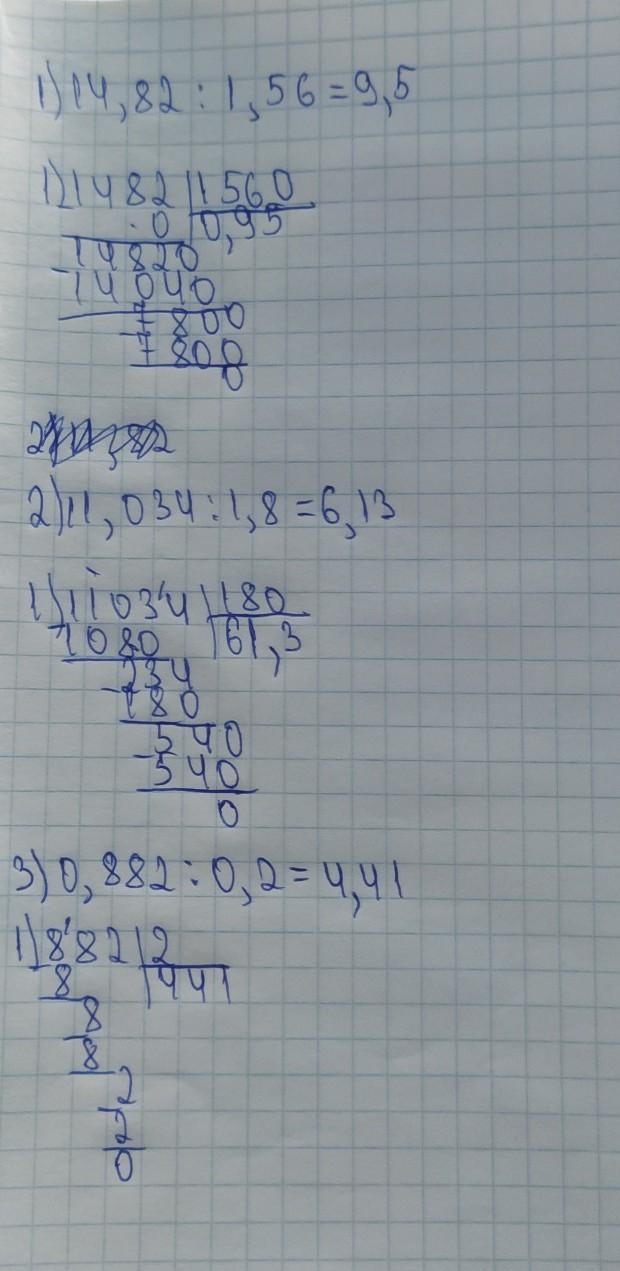 1) 14,82 : 1,56 = 9,5
1) 1482 | 1560
0 | 0,95
14820
- 14040
7800
- 7800
0
2) 11,034 : 1,8 = 6,13
1) 11034 | 180
- 1080 | 61,3
234
- 180
540
- 540
0
3) 0,882 : 0,2 = 4,41
1) 882 | 2
- 8 | 441
8
- 8
2
- 2
0